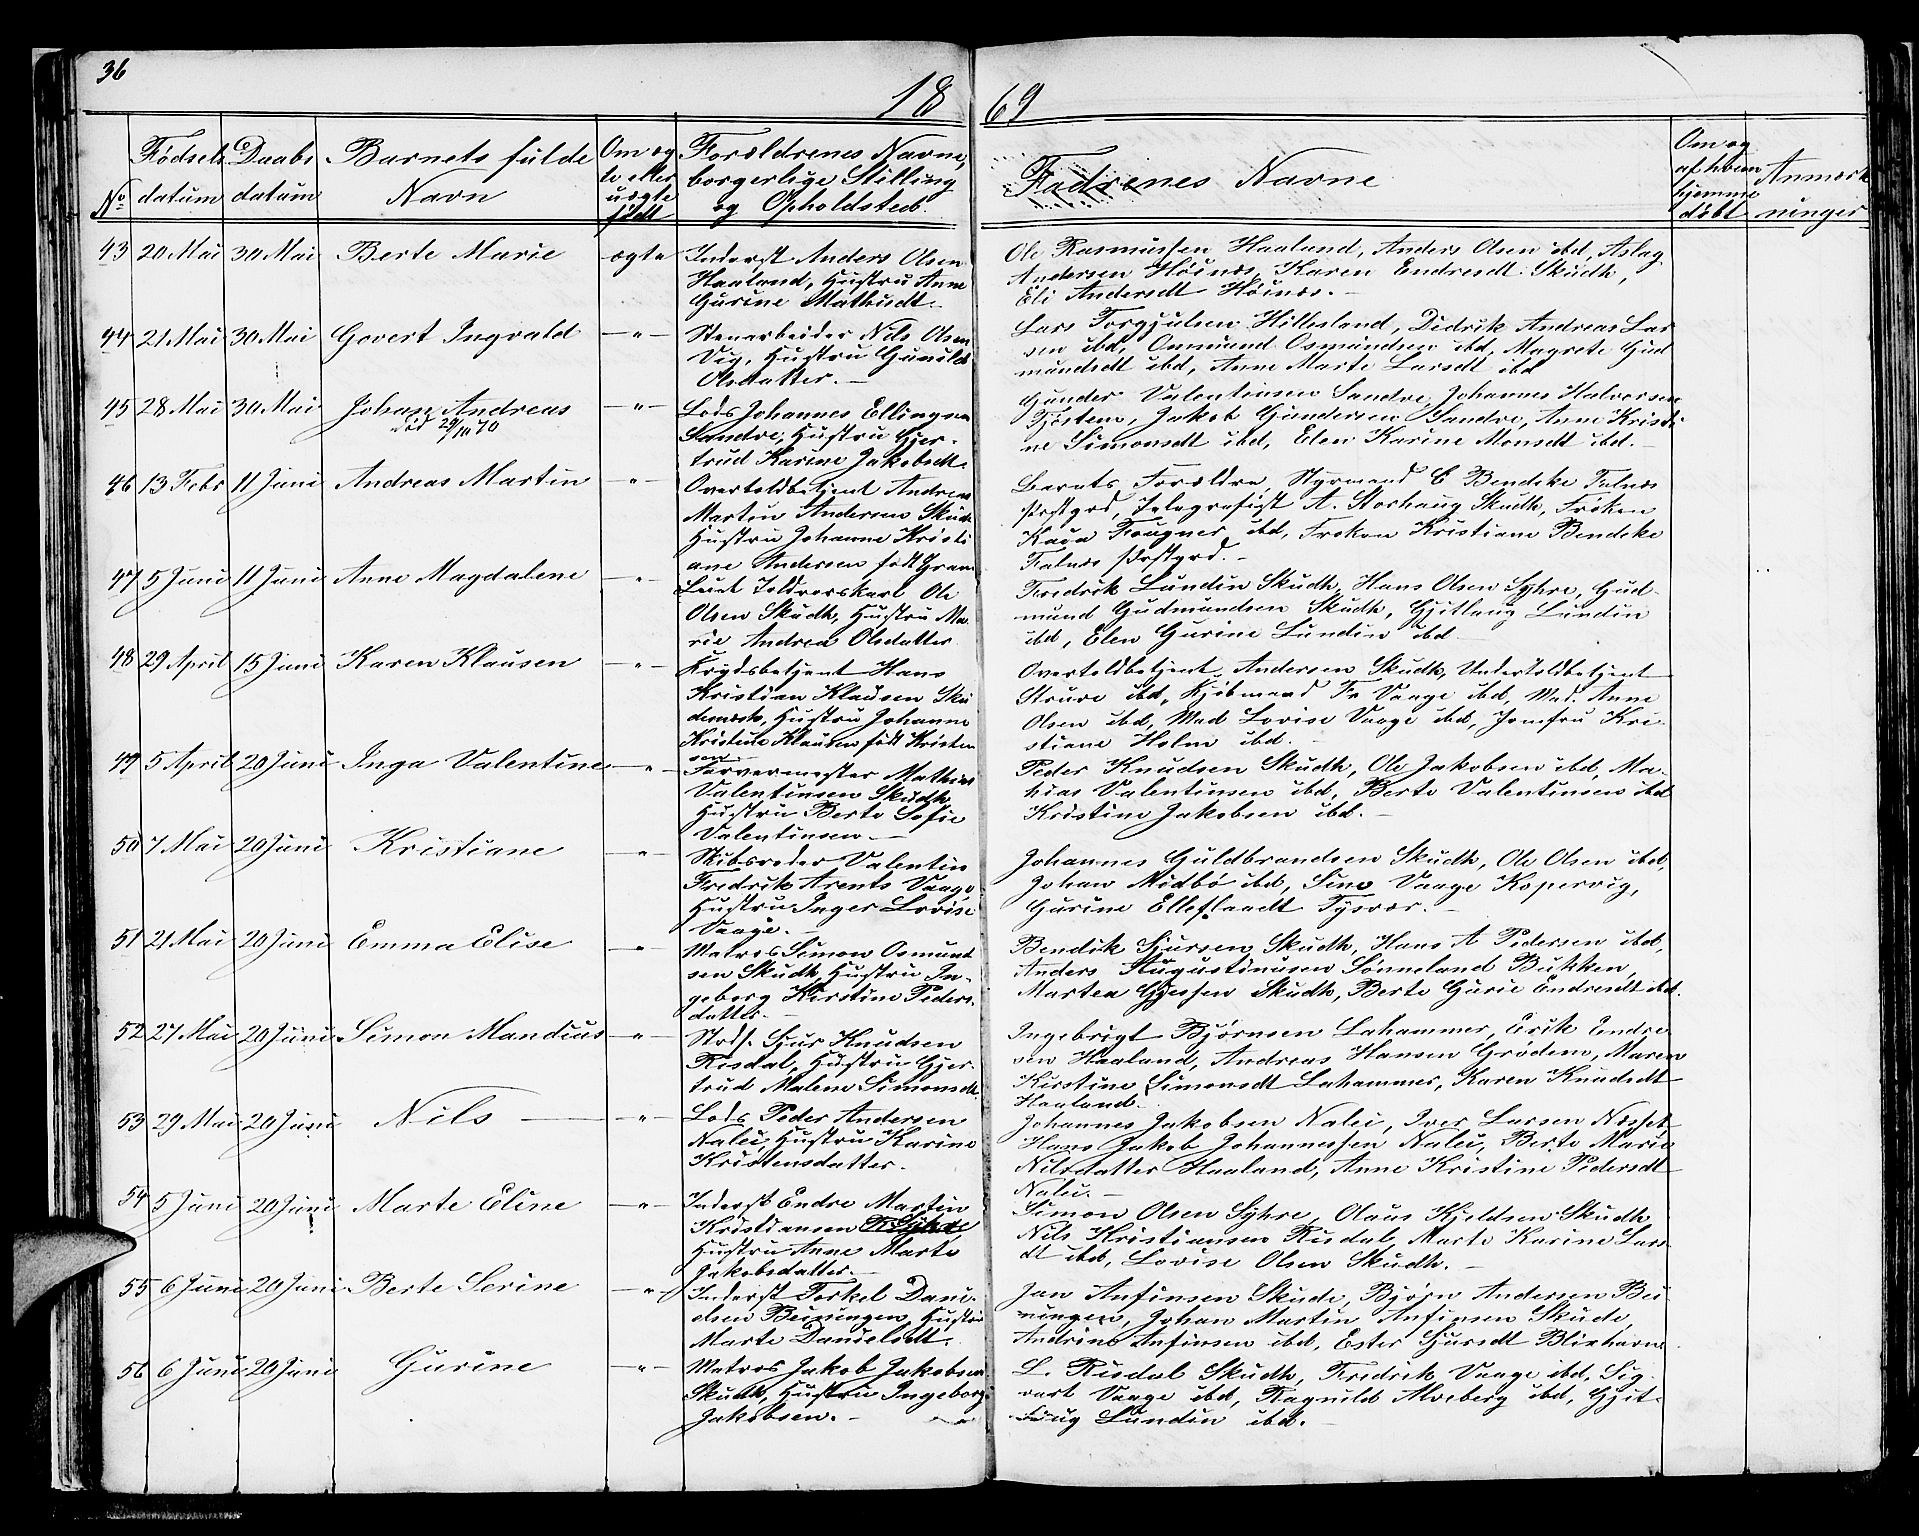 36
18 69
No
Fødsels datum
Daabs datum
Barnets fulde Navn
Om ægte eller uægte født
Forældrenes Navne, borgerlige Stilling og Opholdsted.
Fadrenes Navne
Om og af hvem hjemme døbt
Anmærkninger
43 20 Mai 30 Mai Berte Marie ægte
Inderst Anders Olsen
Haaland, Hustru Anne
Gurine Mathisdt.
Ole Rasmussen Haaland, Anders Olsen ibd, Aslag
Andersen Høinæs, Karen Endresdt. Skudh,
Eli Andersdt Høinæs.
44 21 Mai 30 Mai Govert Ingvald -"-
Stenarbeider Nils Olsen
Vig, Hustru Gunild
Olsdatter.
Lars Torgjulsen Hillesland, Didrik Andreas Lar
sen ibd, Ommund Osmundsen ibd, Magrete Gud
mundsdt ibd, Anne Marte Larsdt ibd
45 28 Mai 30 Mai Johan Andreas -"-
død 29/10 70
Lods Johannes Ellingsen
Sandve, Hustru Gjer-
trud Karine Jakobsdt.
Gunder Valentinsen Sandve, Johannes Halvorsen
Tjøstem, Jakob Gundersen Sandve, Anne Kristi
ne Simonsdt ibd, Elen Karine Monsdt ibd.
46 13 Febr 11 Juni Andreas Martin -"-
Overtoldbetjent Andreas
Martin Andersen Skudh
Hustru Johanne Kristi
ane Andersen født Gram
Barnets Forældre, Styrmand C Bendeke Falnæs
Præstgrd, Telegrafist A. Storhaug Skudh, Frøken
Kaja Fougner ibd, Frøken Kristiane Bendeke
Falnæs Præstgrd.
47 5 Juni 11 Juni Anne Magdalene -"-
Toldroerskarl Ole
Olsen Skudh, Hustru Ma
rie Andrea Olsdatter
Fredrik Lundin Skudh, Hans Olsen Syhre, Gud-
mund Gudmundsen Skudh, Gjitlaug Lundin
ibd, Elen Gurine Lundin ibd.
48 29 April 15 Juni Karen Klausen -"-
Krydsbetjent Hans
Kristian Klausen Sku
desnæsh, Hustru Johanne
Kristine Klausen født Kristen
sen
Overtoldbetjent Andersen Skudh, Undertoldbetjent
Struve ibd, Kjøbmand Fr Vaage ibd, Mad. Anne
Olsen ibd, Mad Lovise Vaage ibd, Jomfru Kri
stiane Holm ibd.
49 5 April 20 Juni Inga Valentine -"-
Farvermester Mathias
Valentinsen Skudh,
Hustru Berte Sofie
Valentinsen.
Peder Knudsen Skudh, Ole Jakobsen ibd, Ma-
thias Valentinsen ibd, Berte Valentinsen ibd
Kristine Jakobsen ibd.
50 7 Mai 20 Juni Kristiane -"-
Skibsreder Valentin
Fredrik Arents Vaage
Hustru Inger Lovise
Vaage.
Johannes Guldbrandsen Skudh, Ole Olsen ibd,
Johan Midbø ibd, Sine Vaage Kopervig,
Gurine Elleflaadt Tysvær.
51 21 Mai 20 Juni Emma Elise "
Matros Simon Osmund
sen Skudh, Hustru In-
geborg Kirstine Peders
datter.
Bendik Sjursen Skudh, Hans A Pedersen ibd,
Anders Augustinusen Sønneland Bukken,
Martea Gjessen Skudh, Berte Gurie Endresdt ibd.
52 27 Mai 20 Juni Simon Mandius -"-
Strds. Sjur Knudsen
Risdal, Hustru Gjer-
trud Malene Simonsdt.
Ingebrigt Bjørnsen Lahammer, Erik Endre
sen Haaland, Andreas Hansen Grødem, Maren
Kirstine Simonsdt Lahammer, Karen Knudsdt
Haaland.
53 29 Mai 20 Juni Nils -"-
Lods Peder Andersen
Nalei, Hustru Karine
Kristensdatter.
Johannes Jakobsen Nalei, Iver Larsen Næsset
Hans Jakob Johannessen Nalei, Berte Marie
Nilsdatter Haaland, Anne Kristine Pedersdt
Nalei.
54 5 Juni 20 Juni Marte Eline -"-
Inderst Endre Martin
Kristiansen Syhre
Hustru Anne Marte
Jakobsdatter.
Simon Olsen Syhre, Olaus Kjeldsen Skudh
Nils Kristiansen Risdal, Marte Karine Lars
dt ibd, Lovise Olsen Skudh.
55 6 Juni 20 Juni Berte Serine -"-
Inderst Torkel Dani-
elsen Beiningen, Hustru
Marte Danielsdt.
Jan Anfinsen Skude, Bjørn Andersen Bei
ningen, Johan Martin Anfinsen Skude,
Andrine Anfinsen ibd, Ester Sjursdt Blixhavn
56 6 Juni 20 Juni Gurine -"-
Matros Jakob Jakobsen
Skudh, Hustru Ingeborg
Jakobsen.
L. Risdal Skudh, Fredrik Vaage ibd, Sig-
vart Vaage ibd, Ragnild Alveberg ibd, Gjit-
laug Lundin ibd.